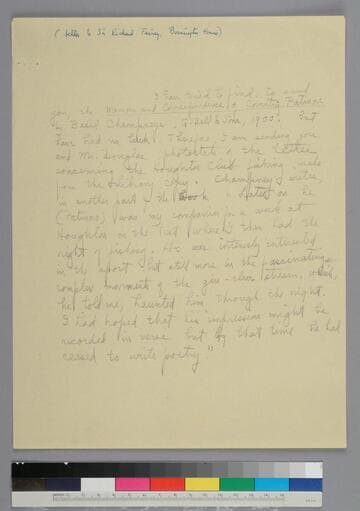 (letter to Sir Richard Fairey, Bossington House)
I have tried to find, to send
you, the Memoirs and Correspondence of Coventry Patmore
by Basil Champneys. G. Bell & Sons, 1900. But
have had no luck. Therefore, I am sending you
and Mr. Douglas photostats of the letters
concerning the Houghton Club fishing made
from the library copy. Champneys writes,
in another part of the book "Later on he
(Patmore) was my companion for a week at
Houghton on the Test where I then had the
right of fishing. He was intensely interested
in the sport but still more in the fascinating
complex movements of the glass-clear stream, which,
he told me, haunted him through the night.
I had hoped that his impressions might be
recorded in verse but by that time he had
ceased to write poetry."